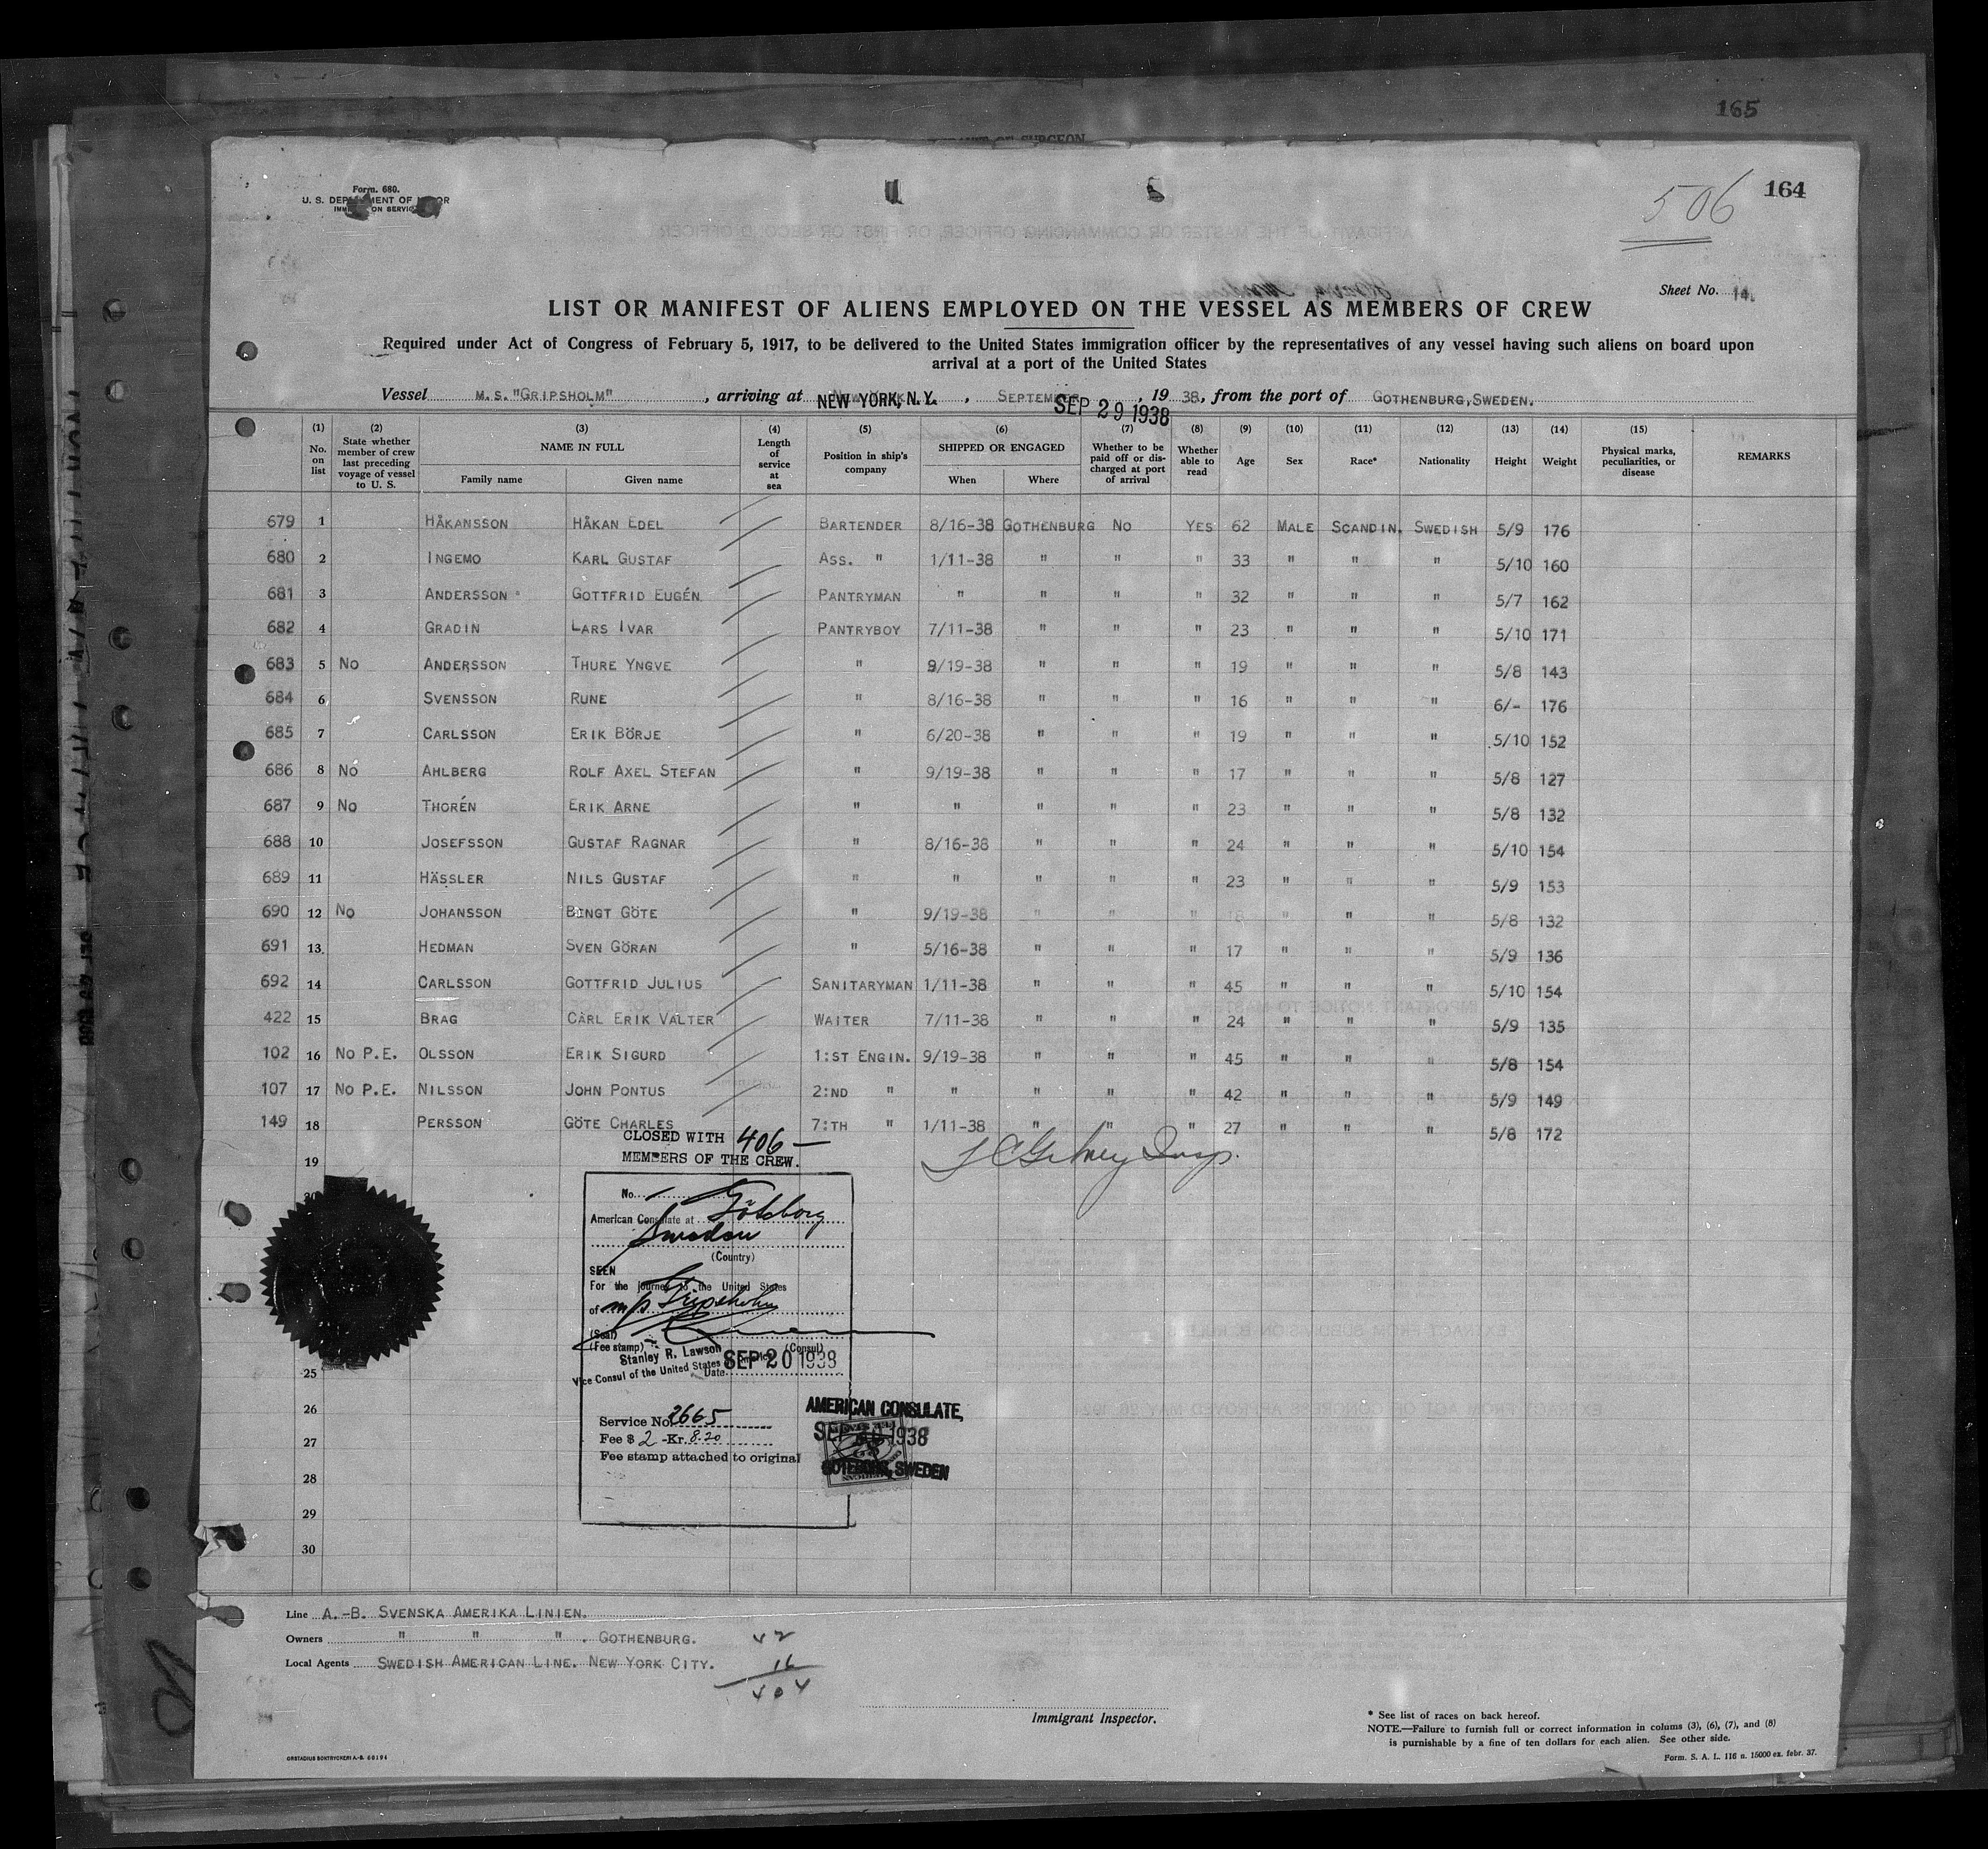 165
164
506
Form. 680.
U. S. DEPARTMENT OF LABOR
IMMIGRATION SERVICE
Sheet No. 14.
LIST OR MANIFEST OF ALIENS EMPLOYED ON THE VESSEL AS MEMBERS OF CREW
Required under Act of Congress of February 5, 1917, to be delivered to the United States immigration officer by the representatives of any vessel having such aliens on board upon
arrival at a port of the United States
Vessel M.S. "GRIPSHOLM", arriving at NEW YORK, N.Y., SEPTEMBER SEP 29 1938, 19 38, from the port of GOTHENBURG, SWEDEN.
(1) No. on list (2) State whether member of crew last preceding voyage of vessel to U. S. (3) NAME IN FULL Family name Given name (4) Length of service at sea (5) Position in ship's company (6) SHIPPED OR ENGAGED When Where (7) Whether to be paid off or discharged at port of arrival (8) Whether able to read (9) Age (10) Sex (11) Race* (12) Nationality (13) Height (14) Weight (15) Physical marks, peculiarities, or disease REMARKS
679 1 HÅKANSSON HÅKAN EDEL BARTENDER 8/16-38 GOTHENBURG NO YES 62 MALE SCANDIN. SWEDISH 5/9 176
680 2 INGEMO KARL GUSTAF ASS. " 1/11-38 " " " 33 " " " 5/10 160
681 3 ANDERSSON GOTTFRID EUGÉN PANTRYMAN " " " " 32 " " " 5/7 162
682 4 GRADIN LARS IVAR PANTRYBOY 7/11-38 " " " 23 " " " 5/10 171
683 5 NO ANDERSSON THURE YNGVE " 9/19-38 " " " 19 " " " 5/8 143
684 6 SVENSSON RUNE " 8/16-38 " " " 16 " " " 6/- 176
685 7 CARLSSON ERIK BÖRJE " 6/20-38 " " " 19 " " " 5/10 152
686 8 NO AHLBERG ROLF AXEL STEFAN " 9/19-38 " " " 17 " " " 5/8 127
687 9 NO THORÉN ERIK ARNE " " " " " 23 " " " 5/8 132
688 10 JOSEFSSON GUSTAF RAGNAR " 8/16-38 " " " 24 " " " 5/10 154
689 11 HÄSSLER NILS GUSTAF " " " " " 23 " " " 5/9 153
690 12 NO JOHANSSON BENGT GÖTE " 9/19-38 " " " 18 " " " 5/8 132
691 13. HEDMAN SVEN GÖRAN " 5/16-38 " " " 17 " " " 5/9 136
692 14 CARLSSON GOTTFRID JULIUS SANITARYMAN 1/11-38 " " " 45 " " " 5/10 154
422 15 BRAG CARL ERIK VALTER WAITER 7/11-38 " " " 24 " " " 5/9 135
102 16 NO P.E. OLSSON ERIK SIGURD 1:ST ENGIN. 9/19-38 " " " 45 " " " 5/8 154
107 17 NO P.E. NILSSON JOHN PONTUS 2:ND " " " " " 42 " " " 5/9 149
149 18 PERSSON GÖTE CHARLES 7:TH " 1/11-38 " " " 27 " " " 5/8 172
CLOSED WITH 406 —
MEMBERS OF THE CREW.
19
No.
American Consulate at Göteborg
Sweden
(Country)
SEEN
For the journey to the United States
of m/s Gripsholm
(Seal)
(Fee stamp) (Consul)
Stanley R. Lawson
Vice Consul of the United States of America
Date SEP 20 1938
25
Service No. 2665
Fee $ 2 -Kr. 8.20
Fee stamp attached to original
AMERICAN CONSULATE,
SEP 20 1938
GOTEBORG, SWEDEN
26
27
28
29
30
Line A.-B. SVENSKA AMERIKA LINIEN.
Owners " " " . GOTHENBURG.
Local Agents SWEDISH AMERICAN LINE. NEW YORK CITY.
Immigrant Inspector.
* See list of races on back hereof.
NOTE.—Failure to furnish full or correct information in colums (3), (6), (7), and (8)
is punishable by a fine of ten dollars for each alien. See other side.
Form. S. A. L. 116 n. 15000 ex. febr. 37.
ORSTADIUS BOKTRYCKERI A.-B. 60194